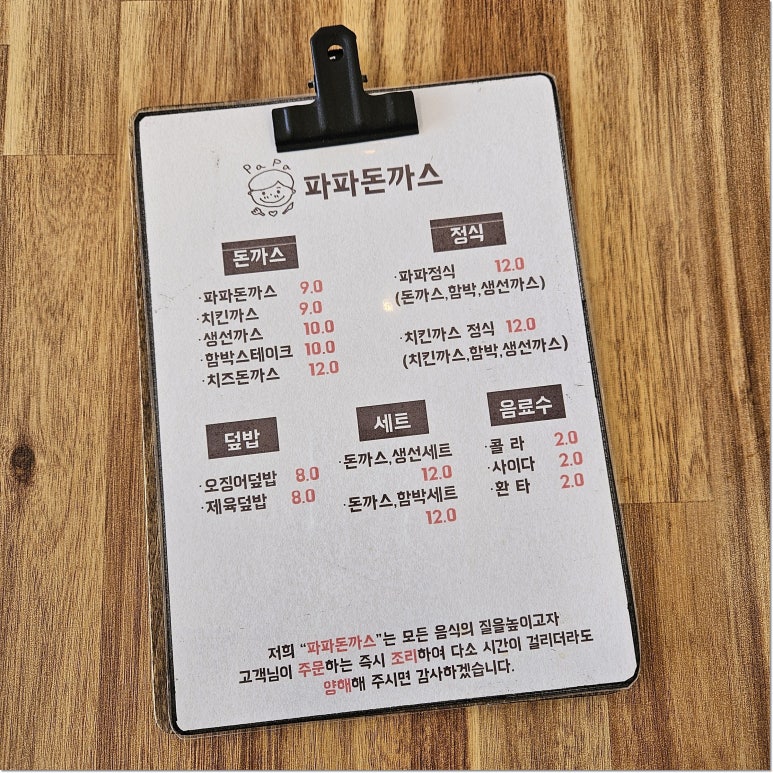 PaPa
파파돈까스
돈까스
·파파돈까스 9.0
·치킨까스 9.0
·생선까스 10.0
·함박스테이크 10.0
·치즈돈까스 12.0
정식
·파파정식 12.0
(돈까스,함박,생선까스)
·치킨까스 정식 12.0
(치킨까스,함박,생선까스)
덮밥
·오징어덮밥 8.0
·제육덮밥 8.0
세트
·돈까스,생선세트
12.0
·돈까스,함박세트
12.0
음료수
·콜 라 2.0
·사이다 2.0
·환 타 2.0
저희 “파파돈까스”는 모든 음식의 질을높이고자
고객님이 주문하는 즉시 조리하여 다소 시간이 걸리더라도
양해해 주시면 감사하겠습니다.